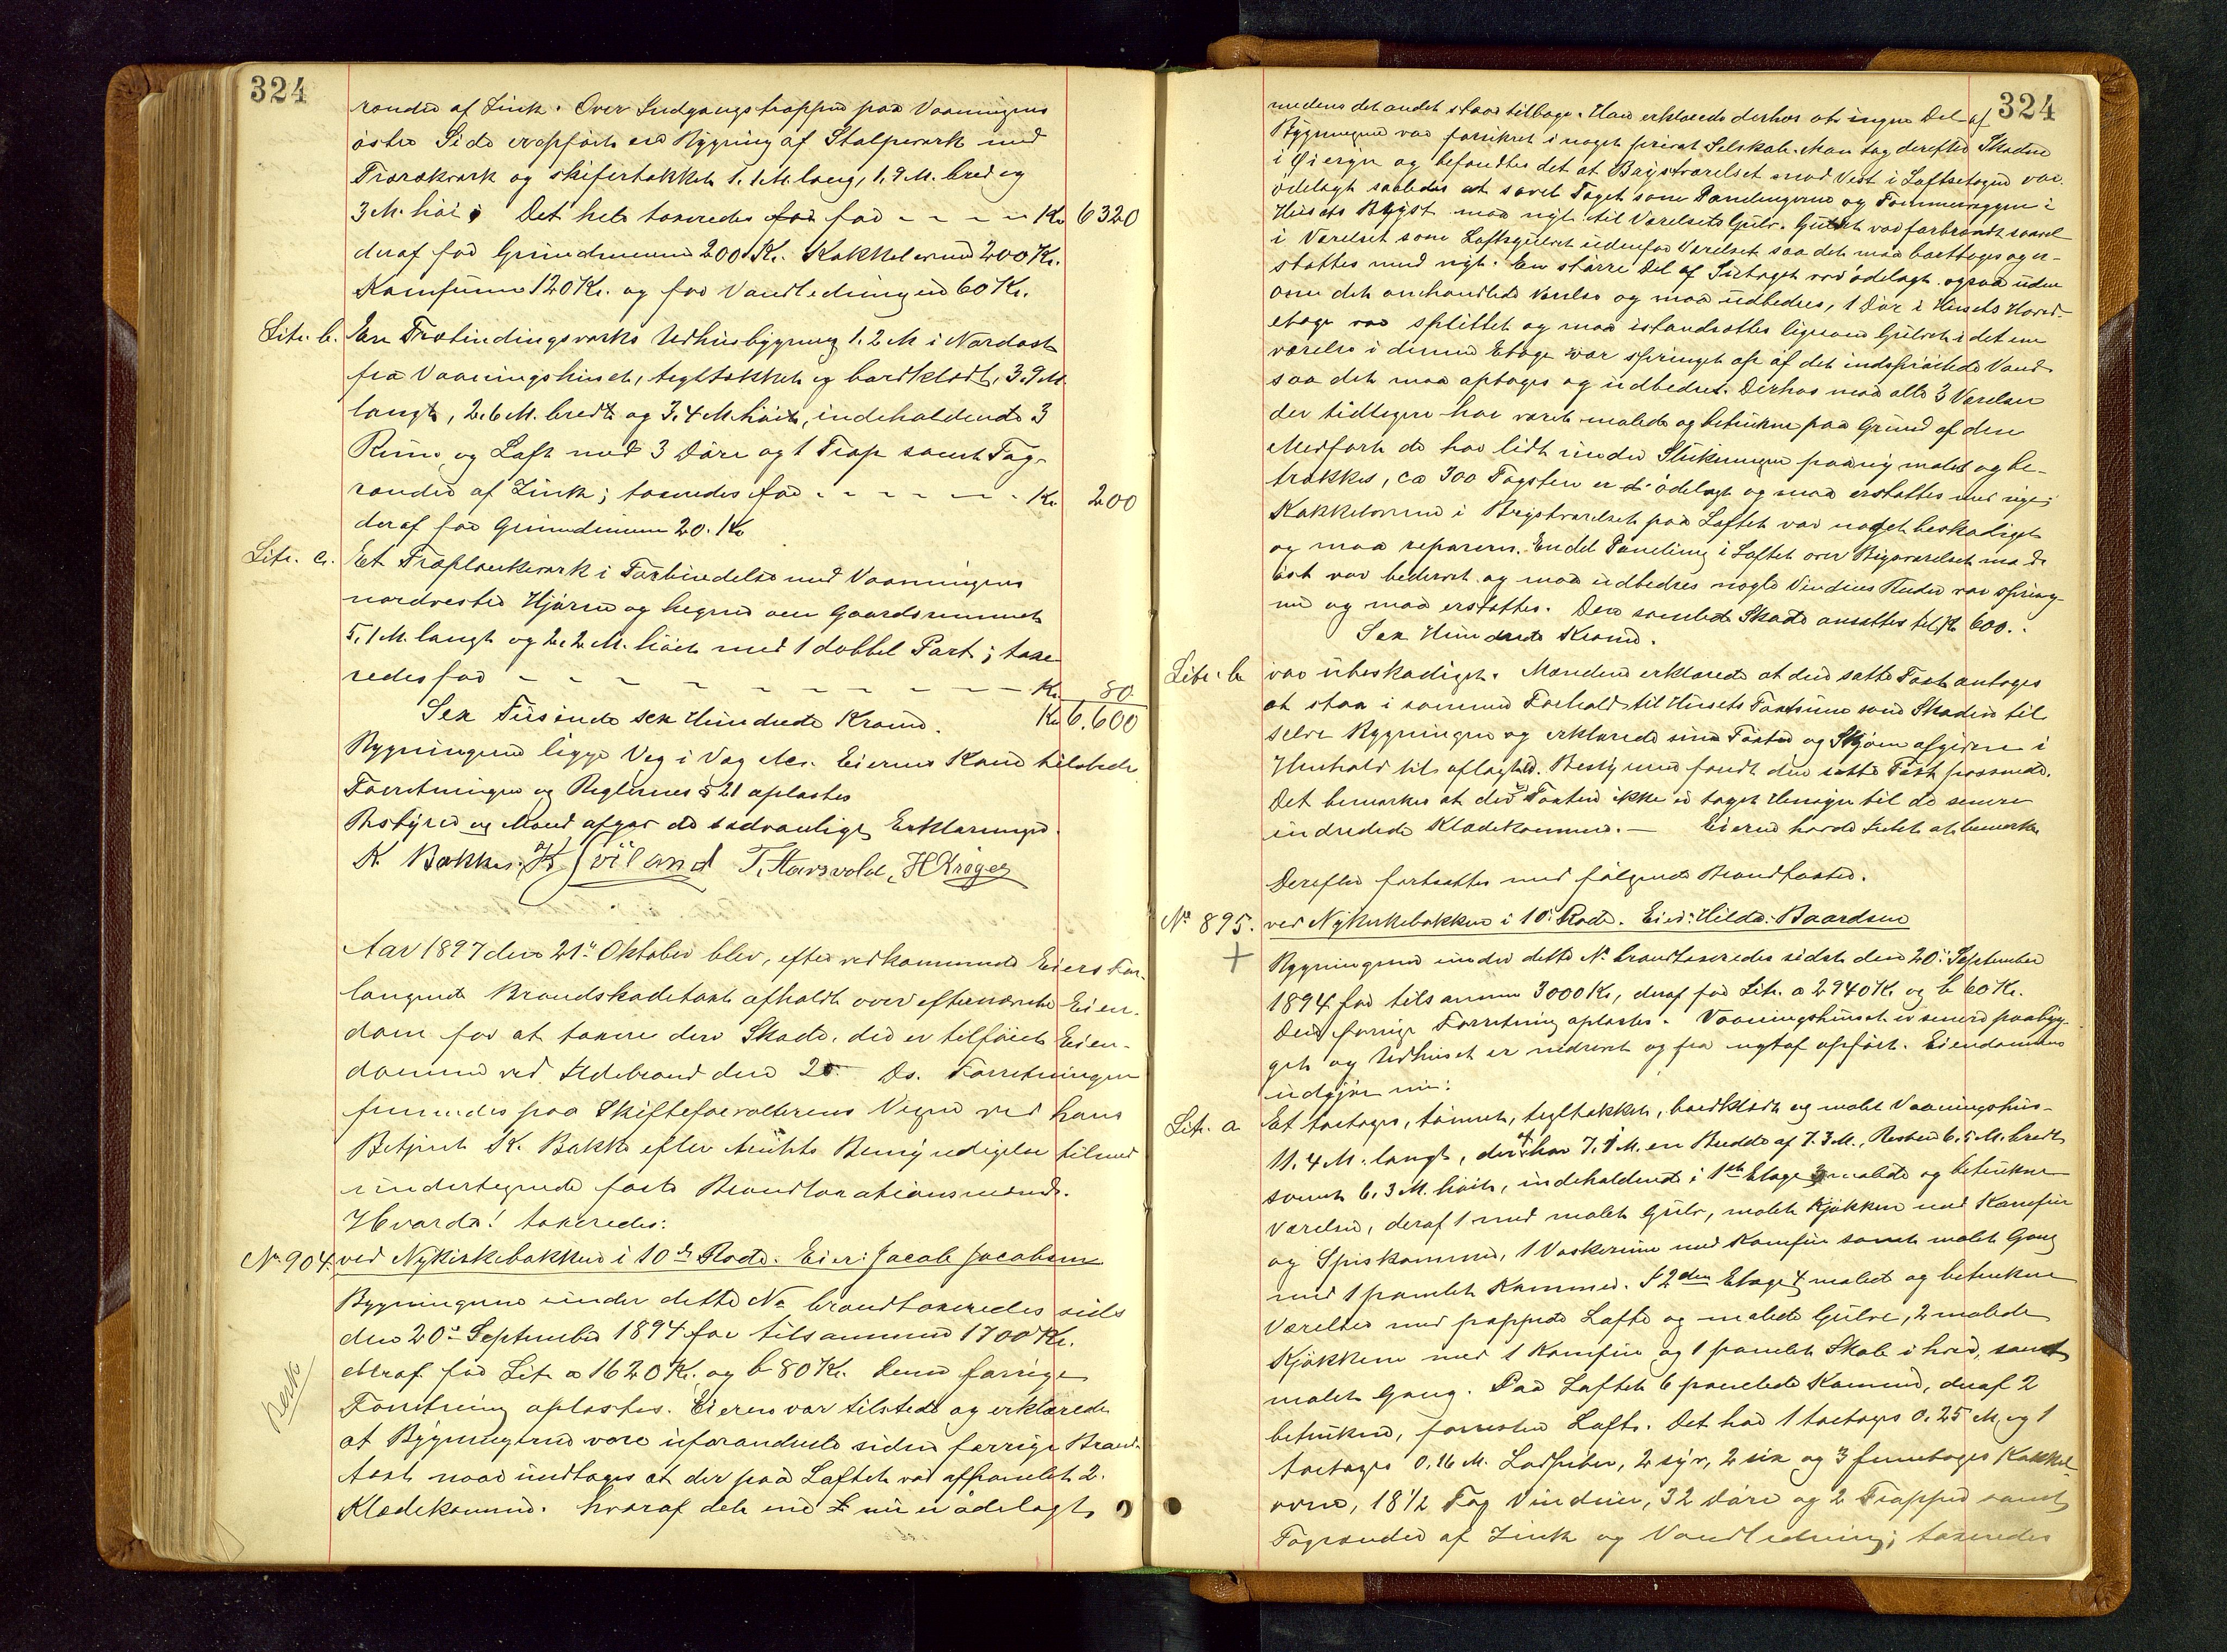 324
render af Zink. Over Indgangstrappen paa Vaaningens
østre Side er opført en Bygning af Stolpeverk med
Træræcverk og skifertækket 1.1 M. lang, 1.9 M. bred og
3 M. høi; Det hele taxeredes for - - - - Kr. 6320
deraf for Grundmuren 200 Kr. Kakkelovne 200 Kr.
Komfurene 120 Kr. og for Vandledningen 60 Kr.
Litr. b. En Træbindingsverks Udhusbygning 1.2 M i Nordost
fra Vaaningshuset, tegltækket og bordklædt, 3.9 M
langt, 2.6 M. bredt og 3.4 M. høit, indeholdende 3
Rum og Loft med 3 Døre og 1 Trap samt Tag-
render af Zink; taxeredes for - - - - - - Kr. 200
deraf for Grundmuren 20. Kr
Litr. c. Et Træplankeverk i Forbindelse med Vaaningens
nordvestre Hjørne og hegner om Gaardsrummet
5.1 M. langt og 2.2 M. høit med 1 dobbel Port; taxe-
redes for - - - - - - - - - - Kr. 80
Sex Tusinde sex Hundrede Kroner. Kr. 6.600
Bygningerne ligge Veg i Veg Aas. Eierens Kone tilstede
Forretningen og Reglernes § 21 oplæstes
Bestyrer og Mænd afgav de sædvanlige Erklæringer.
K. Bakke. K Sviland T. Harsvold, H Krøger
Aar 1897 den 21de Oktober blev, efter vedkommende Eiers For-
langende Brandskadetaxt afholdt over efternævnte Eien-
dom for at taxere den Skade, der er tilføiet Eien-
dommen ved Ildebrand den 20. Ds. Forretningen
fremmedes paa Skifteforvalterens Vegne ved hans
Betjent K. Bakke efter Amtets Bemyndigelse tilmed
undertegnede faste Brandtaxationsmænd.
Hvorda! taxeredes:
No 904. ved Nykirkebakken i 10de Rode. Eier: Jacob Jacobsen
Bygningerne under dette No brandtaxeredes sidst
den 20de September 1894 for tilsammen 1700 Kr.
deraf for Litr. a 1620 Kr. og b 80 Kr. Denne forrige
Besk
Forretning oplæstes. Eieren var tilstede og erklærede
at Bygningerne vare uforandrede siden forrige Brand-
taxt naar undtages at der paa Loftet var afpanelet 2.
Klædekammer. hvoraf det ene nu er ødelagt
324
medens det andet staar tilbage. Han erklærede derhos at ingen Del af
Bygningerne var forsikret i noget privat Selskab. Man tog derefter Skaden
i Øiesyn og befandtes det at Brystværelset mod Vest i Loftsetagen var
ødelagt saaledes at savel Taget som Panelingerne og Tømmervæggen i
Husets Bryst maa nyt til Værelsets Gulv. Gulvet var forbrændt saavel
i Værelset som Loftsgulvet udenfor Værelset saa det maa borttages og er-
stattes med nyt. En større Del af Sutaget var ødelagt ogsaa uden
om det omhandlede Værelse og maa udbedres, 1 Dør i Husets Hoved-
etage var splittet og maa istandsættes ligesom Gulvet i det ene
værelse i denne Etage var sprunget op af det indsprøitede Vand
saa det maa optages og udbedret. Derhos maa alle 3 Værelser
der tidligere har været malede og betrukne paa Grund af den
Medfart de har lidt under Slukningen paany males og be-
trækkes, ca 300 Tagsten er ødelagt og maa erstattes med nye;
Kakkelovnen i Brystværelset paa Loftet var noget beskadiget
og maa repareres. Endel Paneling i Loftet over Bryværelset mod
Øst var bedervet og maa udbedres nogle Vindues Ruder var sprung-
ne og maa erstattes. Den samlede Skade ansættes til Kr 600.
Sex Hundrede Kroner.
Litr. b var ubeskadiget. Mændene erklærede at den satte Taxt antoges
at staa i samme Forhold til Husets Taxtsum som Skaden til
selve Bygningen og erklærede sine Taxter og Skjøn afgivne i
Henhold til aflagt Ed. Bestyreren fandt den satte Taxt passende.
Det bemærkes at der i Taxten ikke er taget Hensyn til de senere
indredede Klædekammer. — Eieren havde Intet at bemærke
Derefter fortsattes med følgende Brandtaxter.
No 895. ved Nykirkebakken i 10de Rode. Eier: Hilda Baardsen
+ Bygningerne under dette No brandtaxeredes sidst den 20de September
1894 for tilsammen 3000 Kr, deraf for Litr. a 2940 Kr og b 60 Kr.
Den forrige Forretning oplæstes. Vaaningshuset er senere paabyg-
get og Udhuset er nedrevet og fra nyt af opført. Eiendommen
udgjør nu:
Litr. a Et toetages, tømret, tegltækket, bordklædt og malet Vaaningshus
11.4 M. langt, deraf har 7.1 M. en Bredde af 7.3 M., Resten 6.5 M. bredt
samt 6.3 M. høit, indeholdende i 1ste Etage 3 malede og betrukne
Værelser, deraf 1 med malet Gulv, malet Kjøkken med Komfur
og Spiskammer, 1 Vaskerum med Komfur samt malet Gang
med 1 panelet Kammer. I 2den Etage 4 malede og betrukne
Værelser med pappede Lofte og malede Gulve, 2 malede
Kjøkkener med 1 Komfur og 1 panelet Skab i hver, samt
malet Gang. Paa Loftet 6 panelede Kammer, deraf 2
betrukne, forresten Loft. Det har 1 toetages 0.25 M, og 1
toetages 0.26 M. Lodpiber, 2 syv, 2 sex og 3 femetages Kakkel-
ovne, 18 1/2 Fag Vinduer, 32 Døre og 2 Trapper samt
Tagrender af Zink og Vandledning; taxeredes